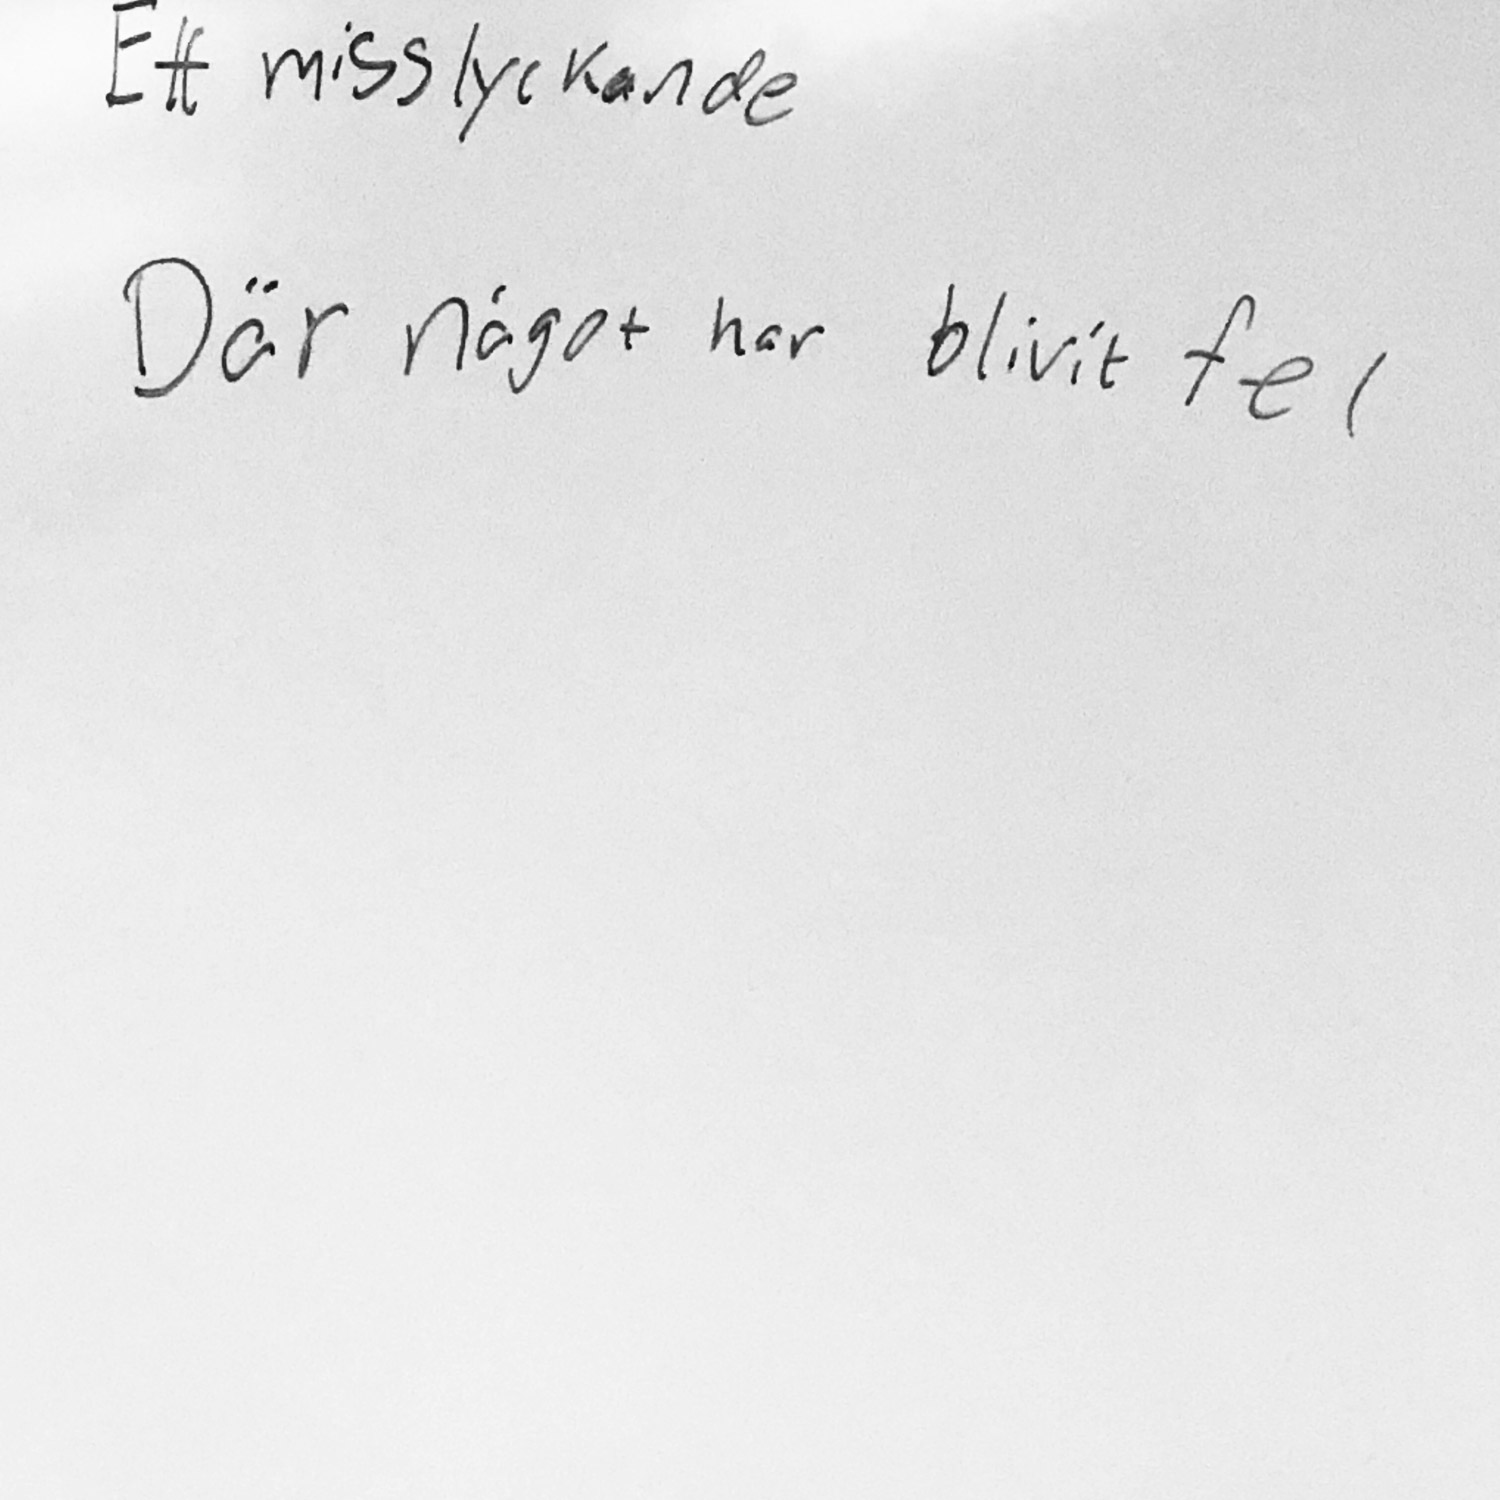 Ett misslyckande
Där något har blivit fel